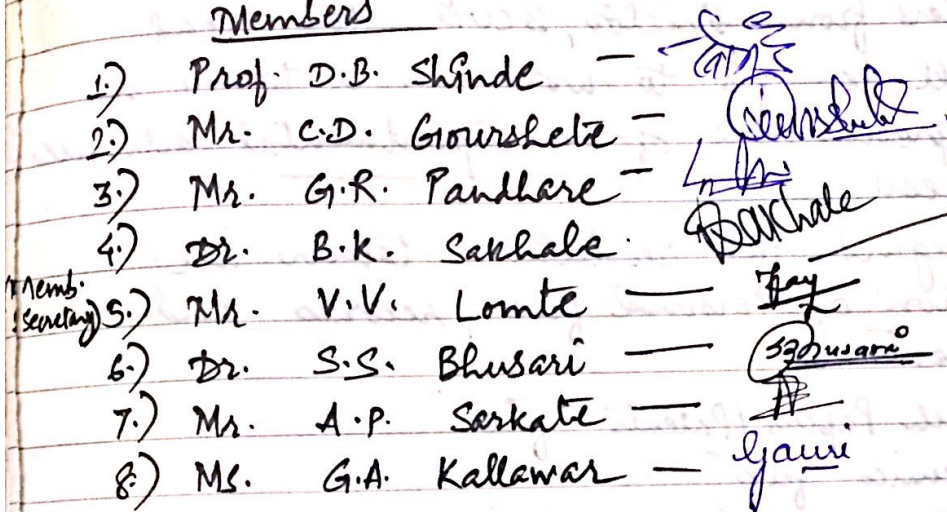 Members
1.) Prof. D.B. Shinde -
2.) Mr. C.D. Gourshete -
3.) Mr. G.R. Pandhare -
4.) Dr. B.K. Sakhale. Sakhale
Memb. Secretary) 5.) Mr. V.V. Lomte —
6.) Dr. S.S. Bhusari — Bhusari
7.) Mr. A.P. Sarkate —
8.) Ms. G.A. Kallawar — Gauri